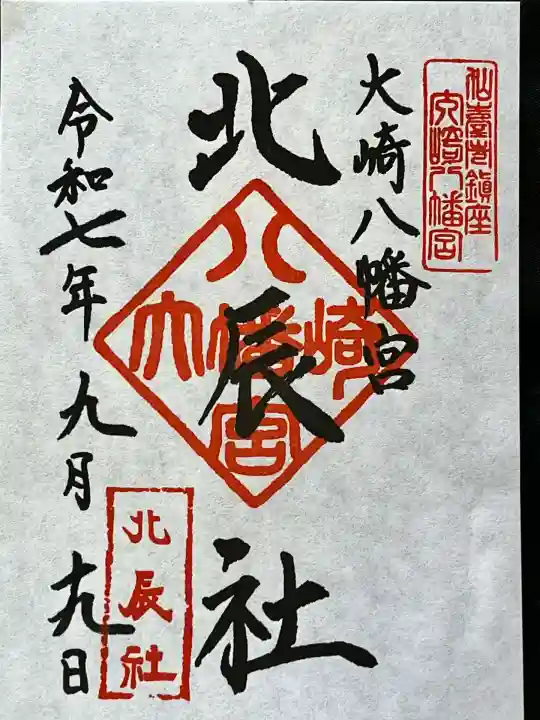 仙臺總鎮座
大崎八幡宮
大崎八幡宮
北辰社
八幡宮
大
崎
令和七年九月十九日
北辰社